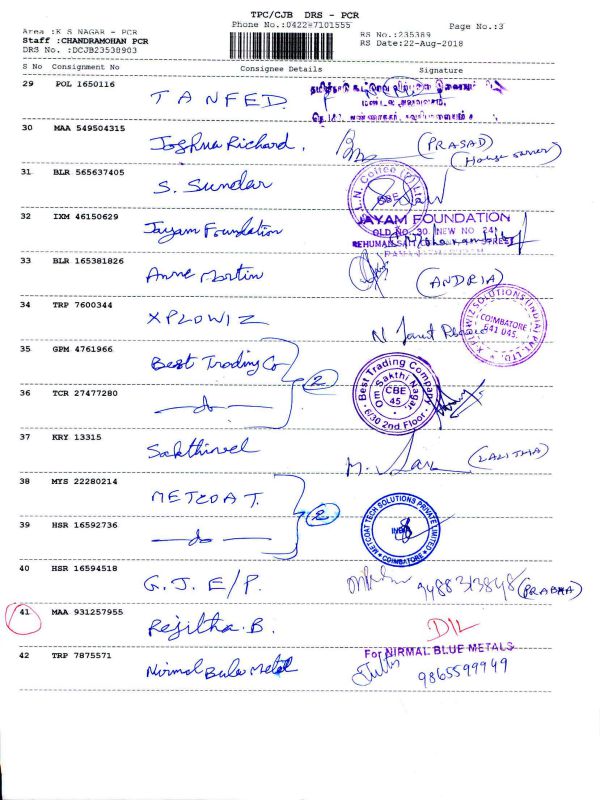 TPC/CJB DRS - PCR
Area :K S NAGAR - PCR
Phone No.:0422#7101555
Page No.:3
Staff :CHANDRAMOHAN PCR
RS No.:235389
DRS No. :DCJB23538903
RS Date:22-Aug-2018
S No Consignment No Consignee Details Signature
29 POL 1650116
TANFED
30 MAA 549504315
Joshua Richard.
(PRASAD)
31 BLR 565637405
S. Sundar
32 IXM 46150629
Jayam Foundation
JAYAM FOUNDATION
OLD NO. 30, NEW NO 24
33 BLR 165381826
Anne Martin
(ANDRIA)
34 TRP 7600344
XPLOWIZ
X-PLOWIZ SOLUTIONS (INDIA) PVT. LTD.
COIMBATORE
641 045.
35 GPM 4761966
Best Trading Co
2
36 TCR 27477280
—do—
Best Trading Company
Om Sakthi Nagar
CBE
45
6/30 2nd Floor
37 KRY 13315
Sakthivel
(LALITHA)
38 MYS 22280214
METCOAT.
2
39 HSR 16592736
—do—
METCOAT TECH SOLUTIONS PRIVATE LIMITED
COIMBATORE
40 HSR 16594518
G.J. E/P.
9488313848 (PRABHA)
41 MAA 931257955
Rejitha.B.
D/L
42 TRP 7875571
Nirmal Bule Metal
For NIRMAL BLUE METALS
9865599949